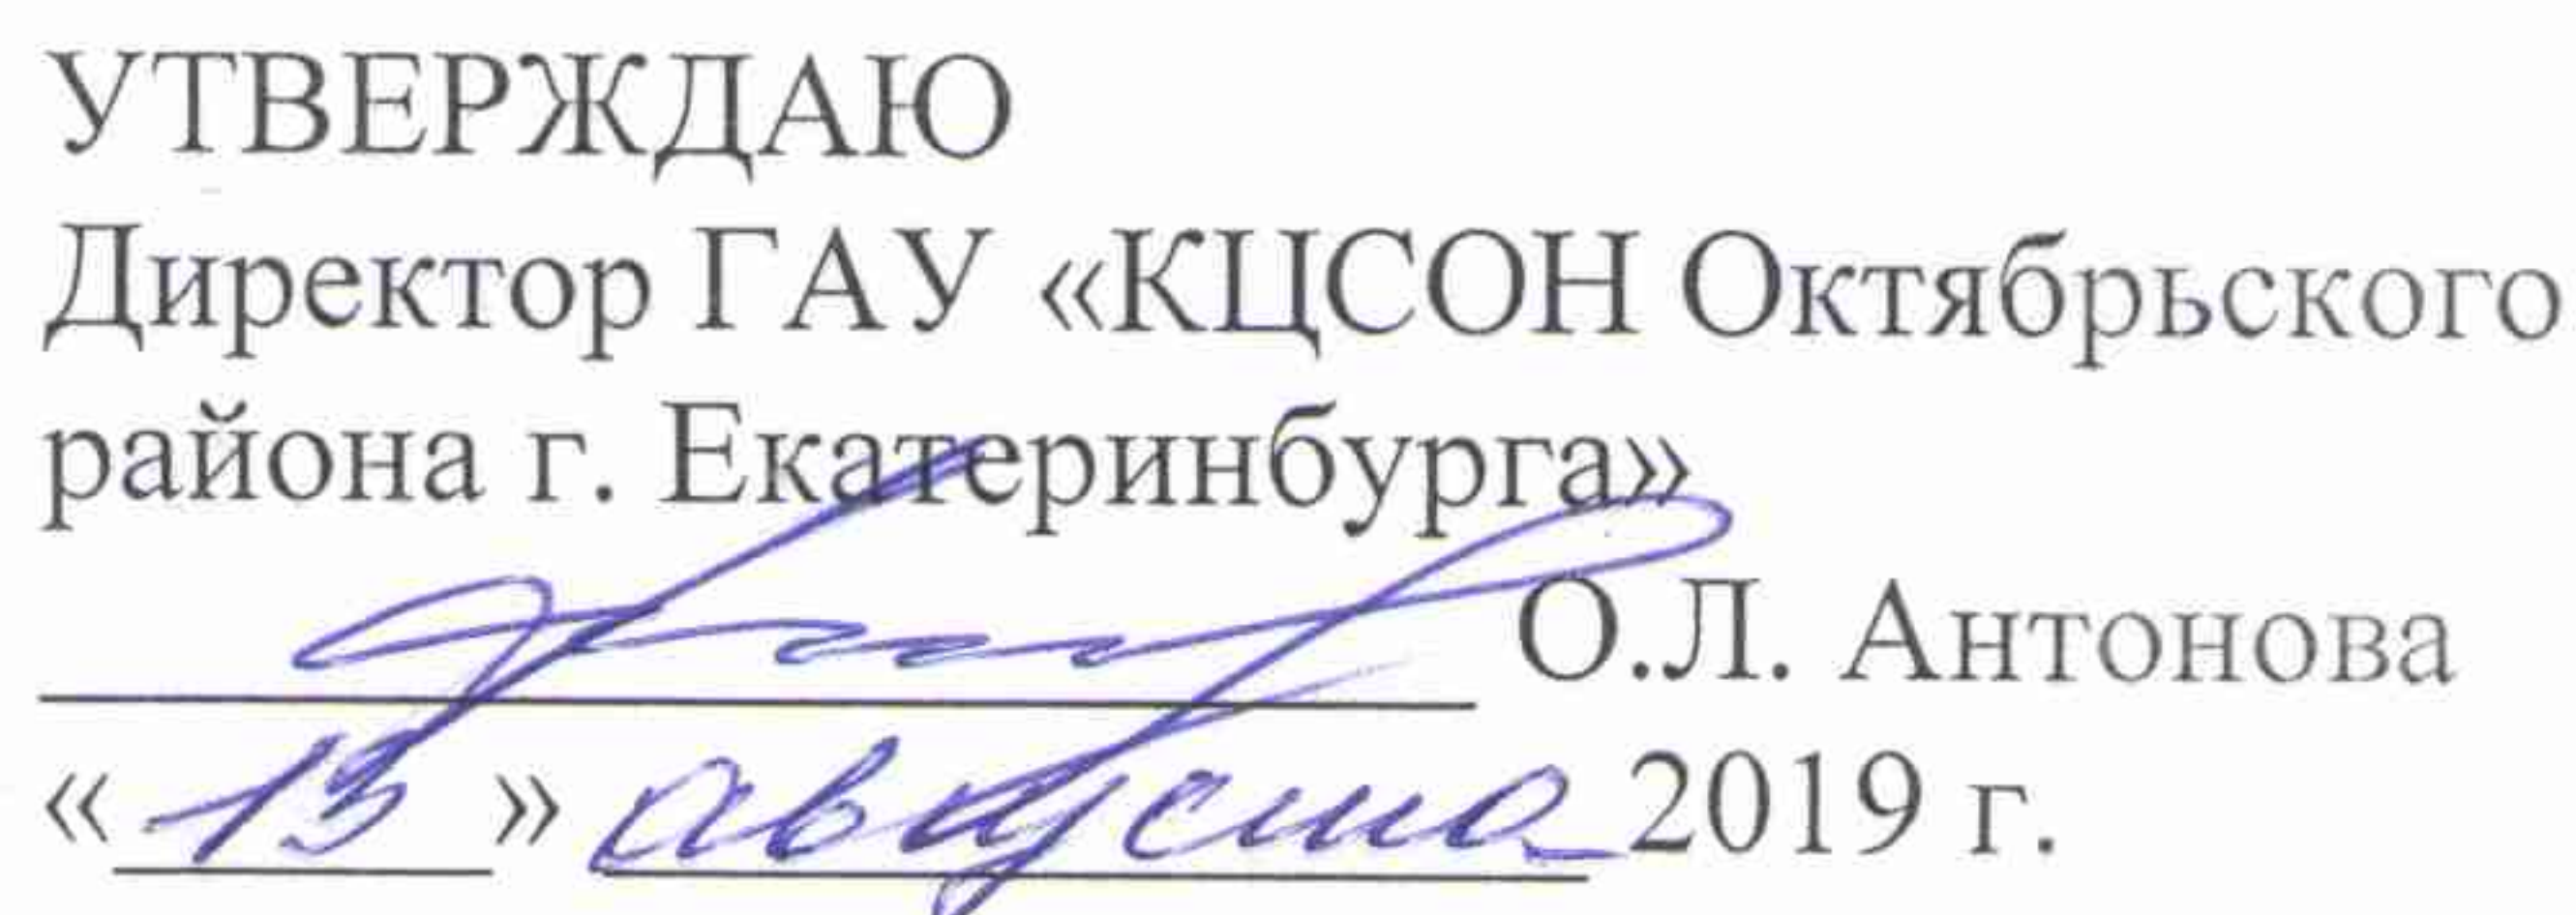 УТВЕРЖДАЮ
Директор ГАУ «КЦСОН Октябрьского
района г. Екатеринбурга»
О.Л. Антонова
«13» августа 2019 г.